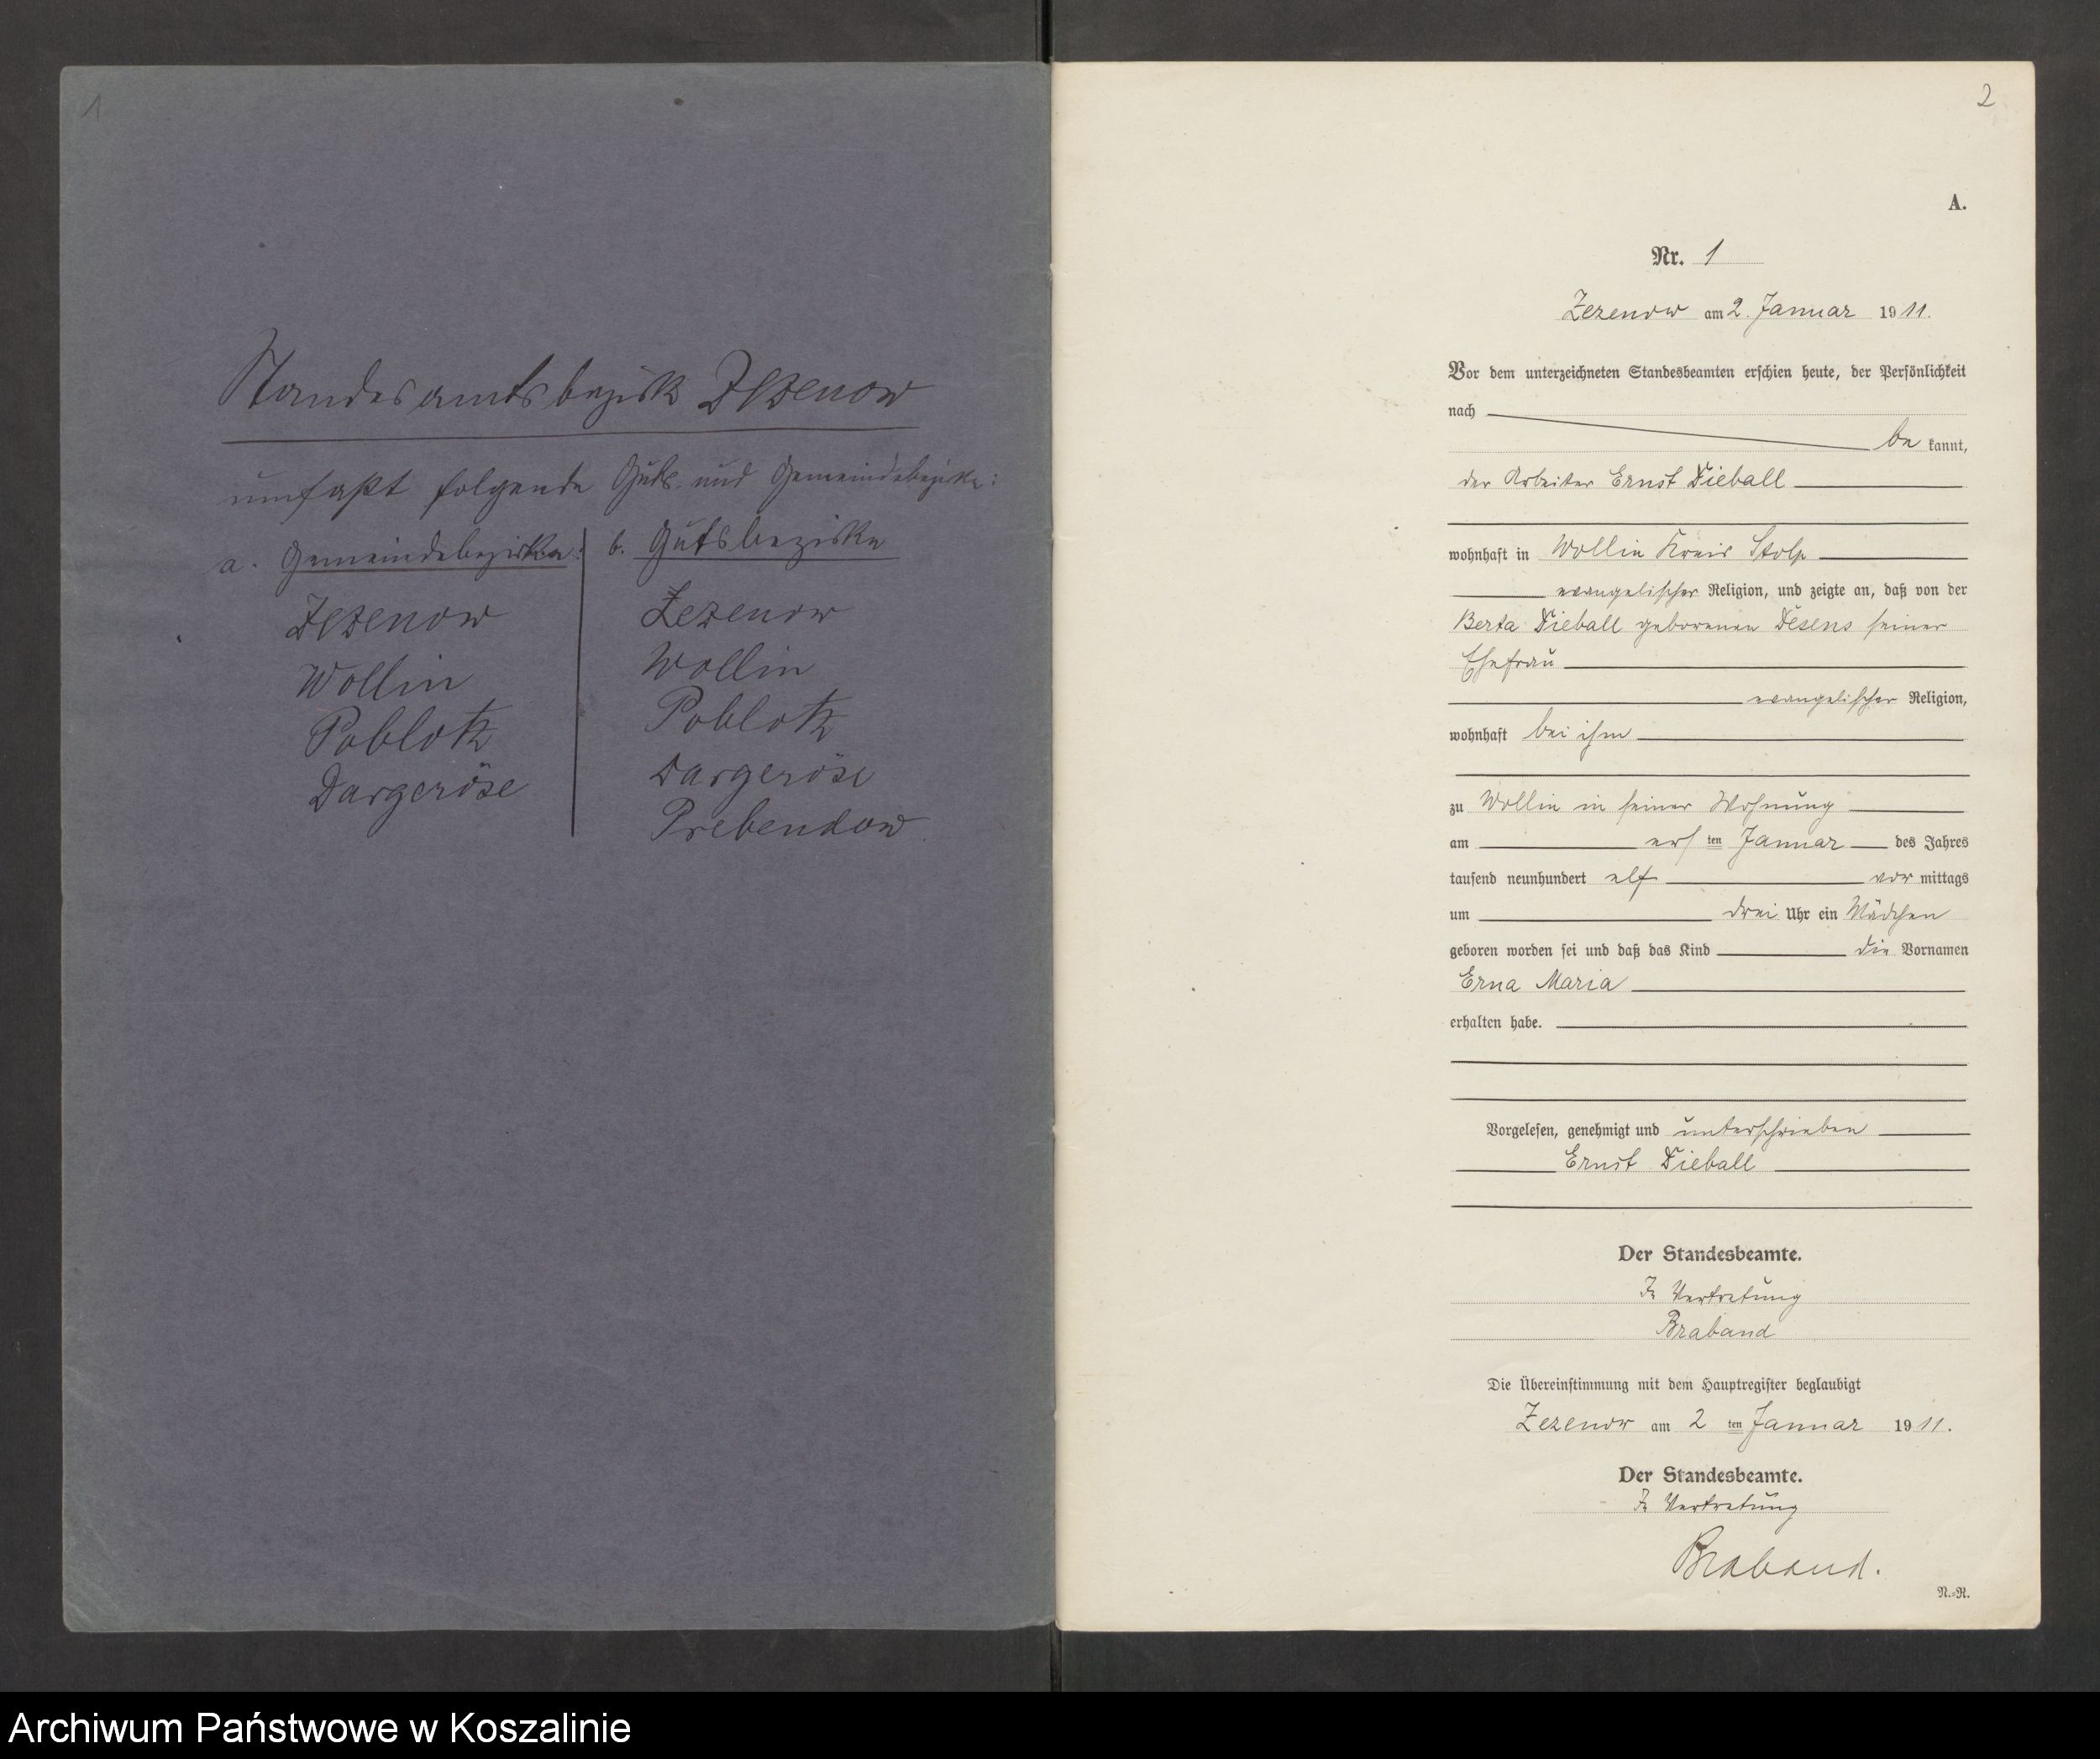 1
Standesamtsbezirk Zezenow
umfaßt folgende Guts- und Gemeindebezirke:
a. Gemeindebezirke:
Zezenow
Wollin
Poblotz
Dargeröse
b. Gutsbezirke
Zezenow
Wollin
Poblotz
Dargeröse
Prebendow
2
A.
Nr. 1
Zezenow am 2. Januar 1911.
Vor dem unterzeichneten Standesbeamten erschien heute, der Persönlichkeit
nach
be kannt,
der Arbeiter Ernst Dieball
wohnhaft in Wollin Kreis Stolp
evangelischer Religion, und zeigte an, daß von der
Berta Dieball geborenen Desens seiner
Ehefrau
evangelischer Religion,
wohnhaft bei ihm
zu Wollin in seiner Wohnung
am ersten Januar des Jahres
tausend neunhundert elf vor mittags
um drei Uhr ein Mädchen
geboren worden sei und daß das Kind die Vornamen
Erna Maria
erhalten habe.
Vorgelesen, genehmigt und unterschrieben
Ernst Dieball
Der Standesbeamte.
In Vertretung
Braband
Die Übereinstimmung mit dem Hauptregister beglaubigt
Zezenow am 2 ten Januar 1911.
Der Standesbeamte.
In Vertretung
Braband.
N.-R.
Archiwum Państwowe w Koszalinie